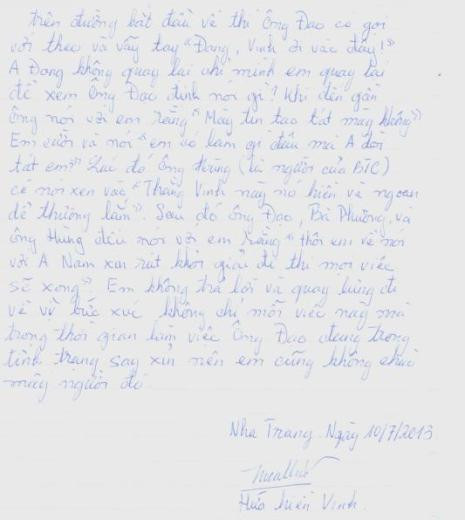 trên đường bắt đầu về thì Ông Đạo có gọi
với theo và vẫy tay "Đang, Vinh ơi vào đây!"
A Đang không quay lại chỉ mình em quay lại
để xem Ông Đạo định nói gì? Khi đến gần
Ông nói với em rằng "Mày tin tao tát mày không"
Em cười và nói "em có làm gì đâu mà A đòi
tát em" Lúc đó Ông Hùng (là người của BTC)
có nói xen vào "Thằng Vinh này nó hiền và ngoan
dễ thương lắm". Sau đó Ông Đạo, Bà Phường và
ông Hùng đều nói với em rằng "thôi em về nói
với A Nam xin rút khỏi giải đi thì mọi việc
sẽ xong". Em không trả lời và quay lưng đi
về vì bức xúc không chỉ mỗi việc này mà
trong thời gian làm việc Ông Đạo đang trong
tình trạng say xỉn nên em cũng không chấp
mấy người đó.
Nha Trang Ngày 10/7/2013
Hiền Vinh.